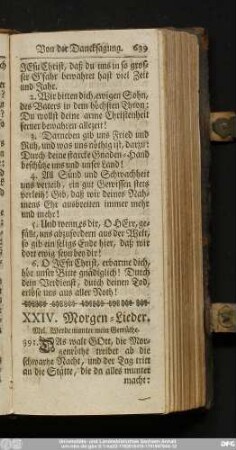 Von der Dancksagung. 639
JEsu Christ, daß du uns in so gros-
ser G'fahr bewahret hast viel Zeit
und Jahr.
2. Wir bitten dich, ewigen Sohn,
des Vaters in dem höchsten Thron:
Du wollst deine arme Christenheit
ferner bewahren allezeit!
3. Darneben gib uns Fried und
Ruh, und was uns nöthig ist, darzu:
Durch deine starcke Gnaden-Hand
beschütze uns und unser Land!
4. All Sünd und Schwachheit
uns verzeih, ein gut Gewissen stets
verleih! Gib, daß wir deines Nah-
mens Ehr ausbreiten immer mehr
und mehr!
5. Und wenn es dir, O HErr, ge-
fällt, uns abzufordern aus der Welt,
so gib ein seligs Ende hier, daß wir
dort ewig seyn bey dir!
6. O JEsu Christ, erbarme dich,
hör unser Bitte gnädiglich! Durch
dein Verdienst, durch deinen Tod,
erlöse uns aus aller Noth!
XXIV. Morgen-Lieder.
Mel. Werde munter mein Gemüthe.
DAs walt GOtt, die Mor-
genröthe treibet ab die
schwartze Nacht, und der Tag tritt
an die Stätte, die da alles munter
macht: